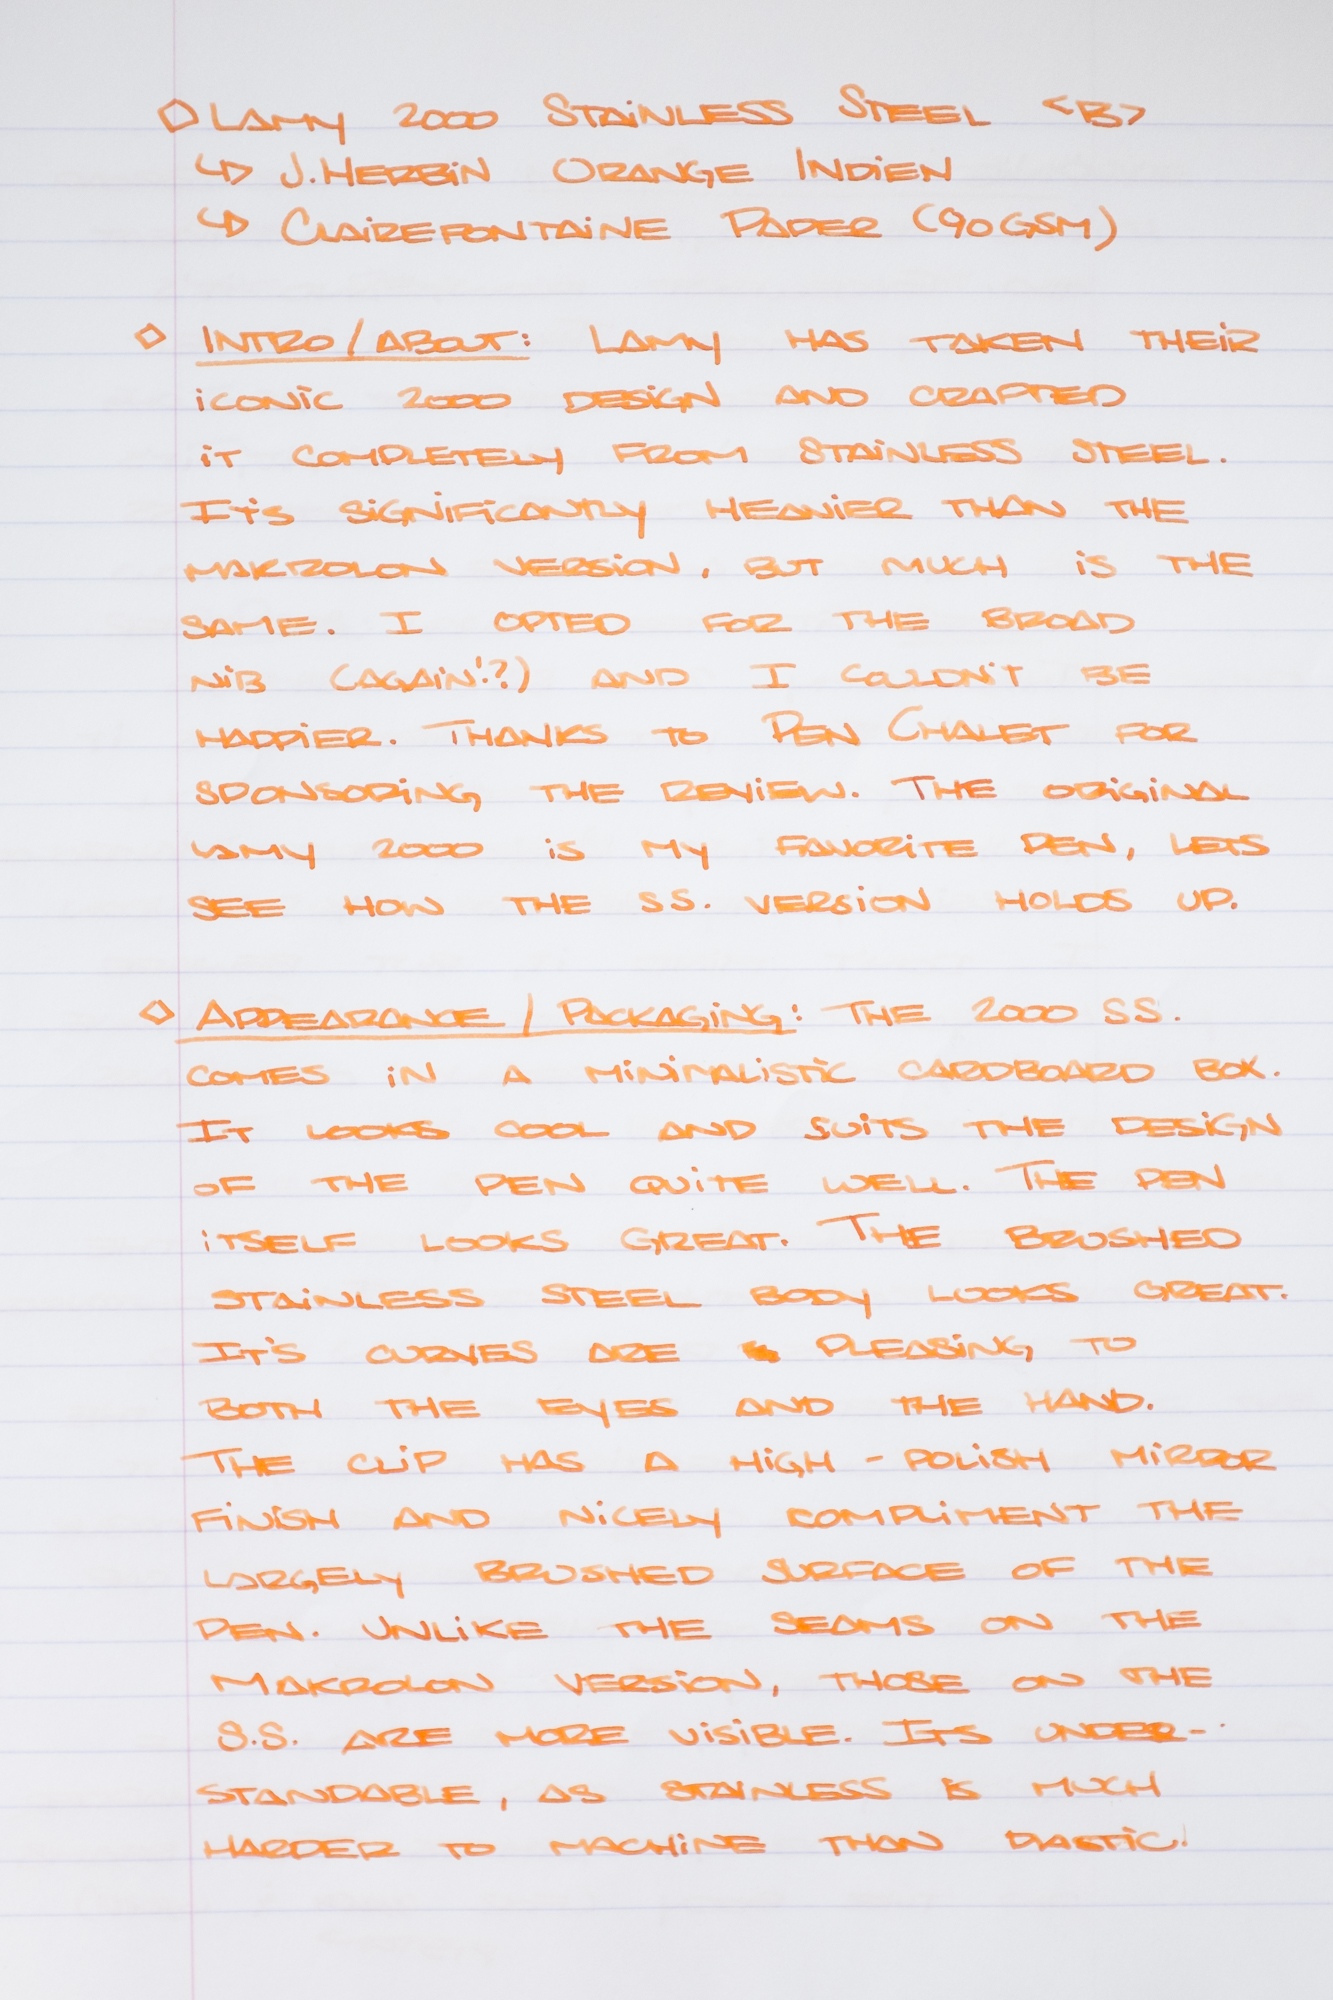 ◇ Lamy 2000 Stainless Steel <B>
↳ J.Herbin Orange Indien
↳ Clairefontaine Paper (90GSM)
◇ Intro/About: Lamy has taken their
iconic 2000 design and crafted
it completely from stainless steel.
It's significantly heavier than the
makrolon version, but much is the
same. I opted for the broad
nib (again!?) and I couldn't be
happier. Thanks to Pen Chalet for
sponsoring the review. The original
Lamy 2000 is my favorite pen, lets
see how the SS. version holds up.
◇ Appearance / Packaging: The 2000 SS.
comes in a minimalistic cardboard box.
It looks cool and suits the design
of the pen quite well. The pen
itself looks great. The brushed
stainless steel body looks great.
It's curves are pleasing to
both the eyes and the hand.
The clip has a high-polish mirror
finish and nicely compliment the
largely brushed surface of the
pen. Unlike the seams on the
Makrolon version, those on the
S.S. are more visible. Its under-
standable, as stainless is much
harder to machine than plastic.